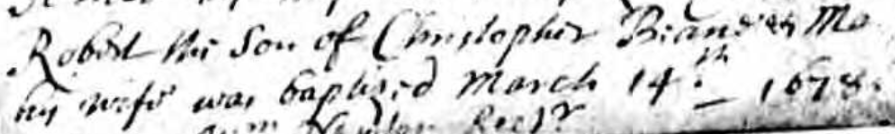 Robert the Son of Christopher Brand & Ma
his wife was baptized March 14th 1678.
Newton Rectr